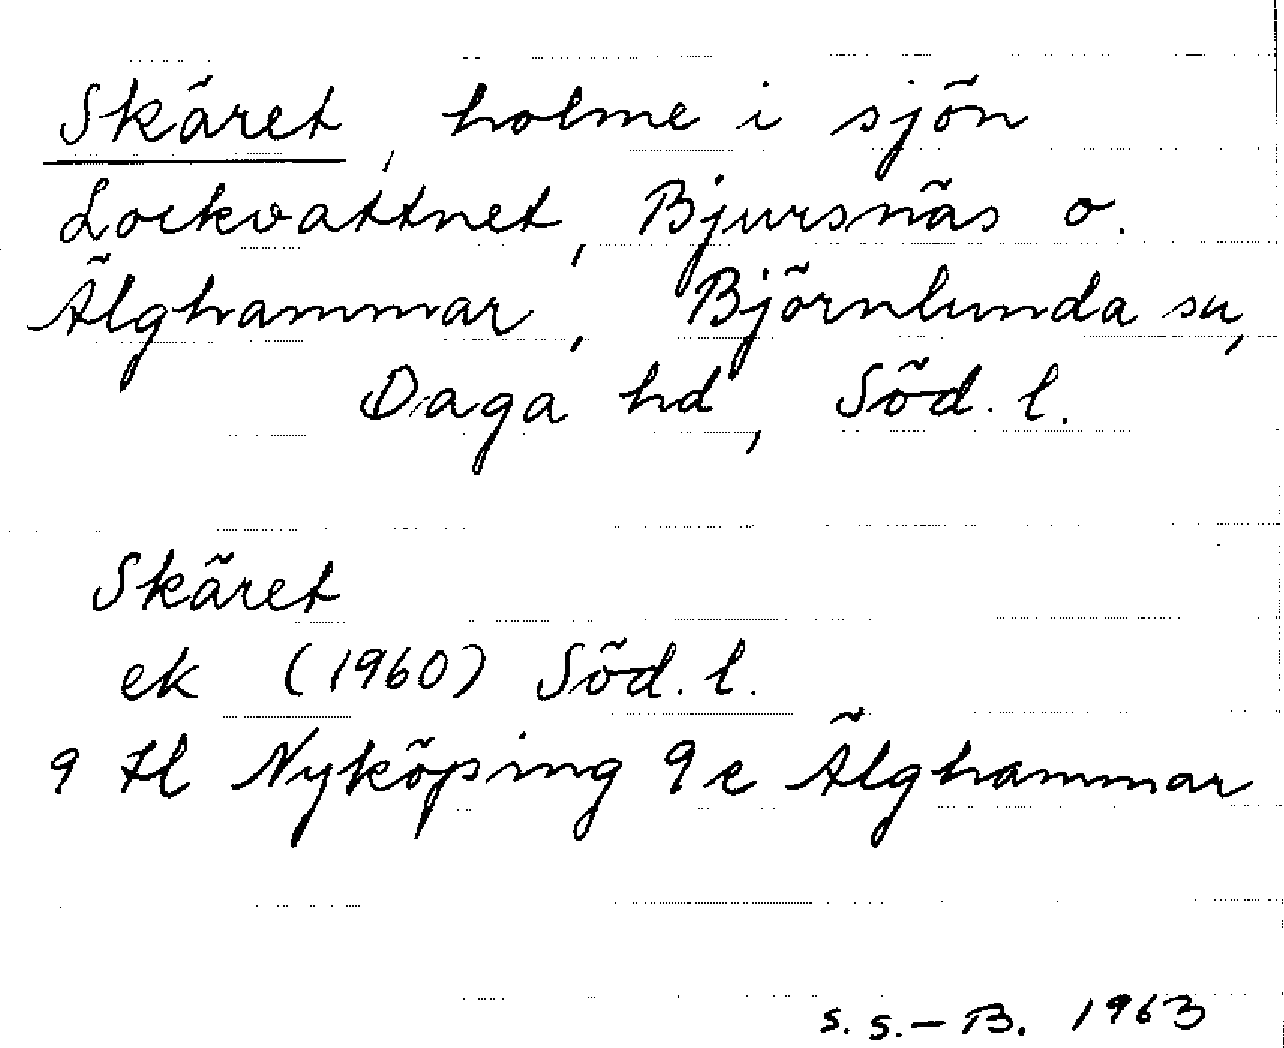 Skäret, holme i sjön
Lockvattnet, Bjursnäs o.
Älghammar, Björnlunda sn,
Daga hd, Söd. l.
Skäret
ek (1960) Söd. l.
9 H l Nyköping 9 c Älghammar
S. S.-B. 1963